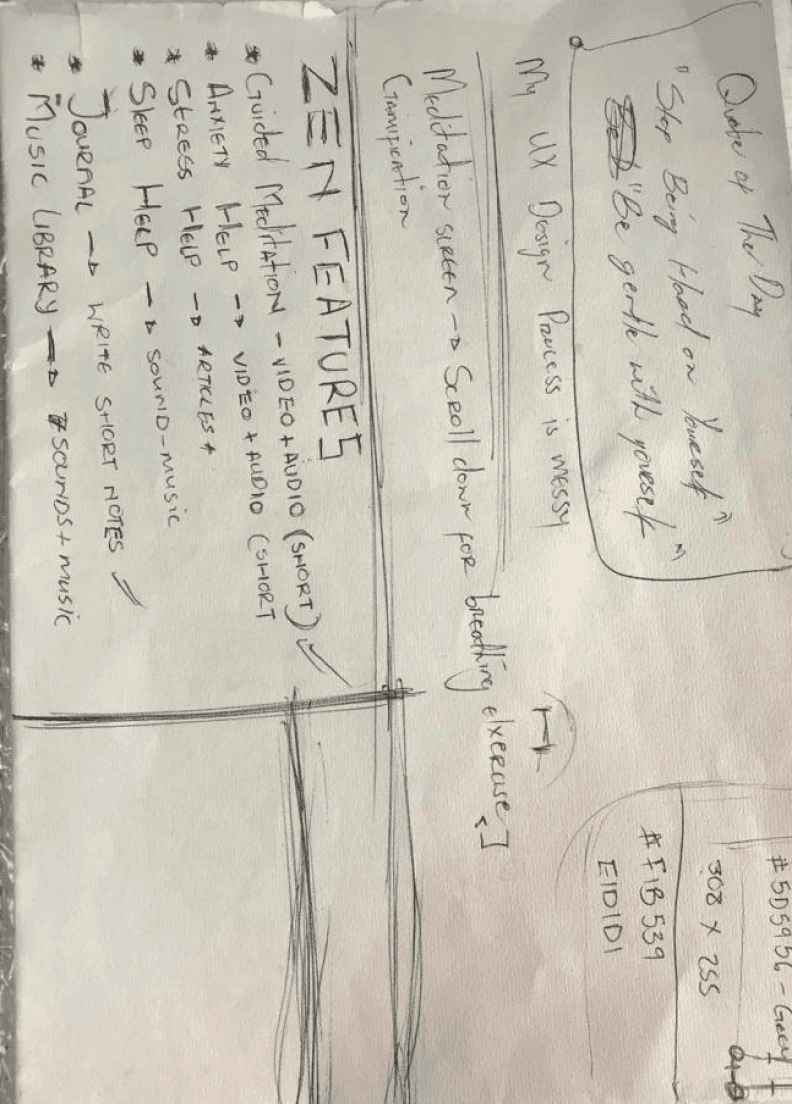 Quote of The Day
"Stop Being Hard on Yourself"
"Be gentle with yourself"
My UX Design Process is messy
Meditation screen → Scroll down for breathing exercise]
Gamification
ZEN FEATURES
* Guided Meditation - VIDEO + AUDIO (SHORT) ✓
* ANXIETY HELP → VIDEO + AUDIO (SHORT
* STRESS HELP → ARTICLES +
* SLEEP HELP → SOUND-MUSIC
* JOURNAL → WRITE SHORT NOTES ✓
* MUSIC LIBRARY → SOUNDS + MUSIC
#5D5956 - Grey
308 X 255
#F1B539
E1D1D1